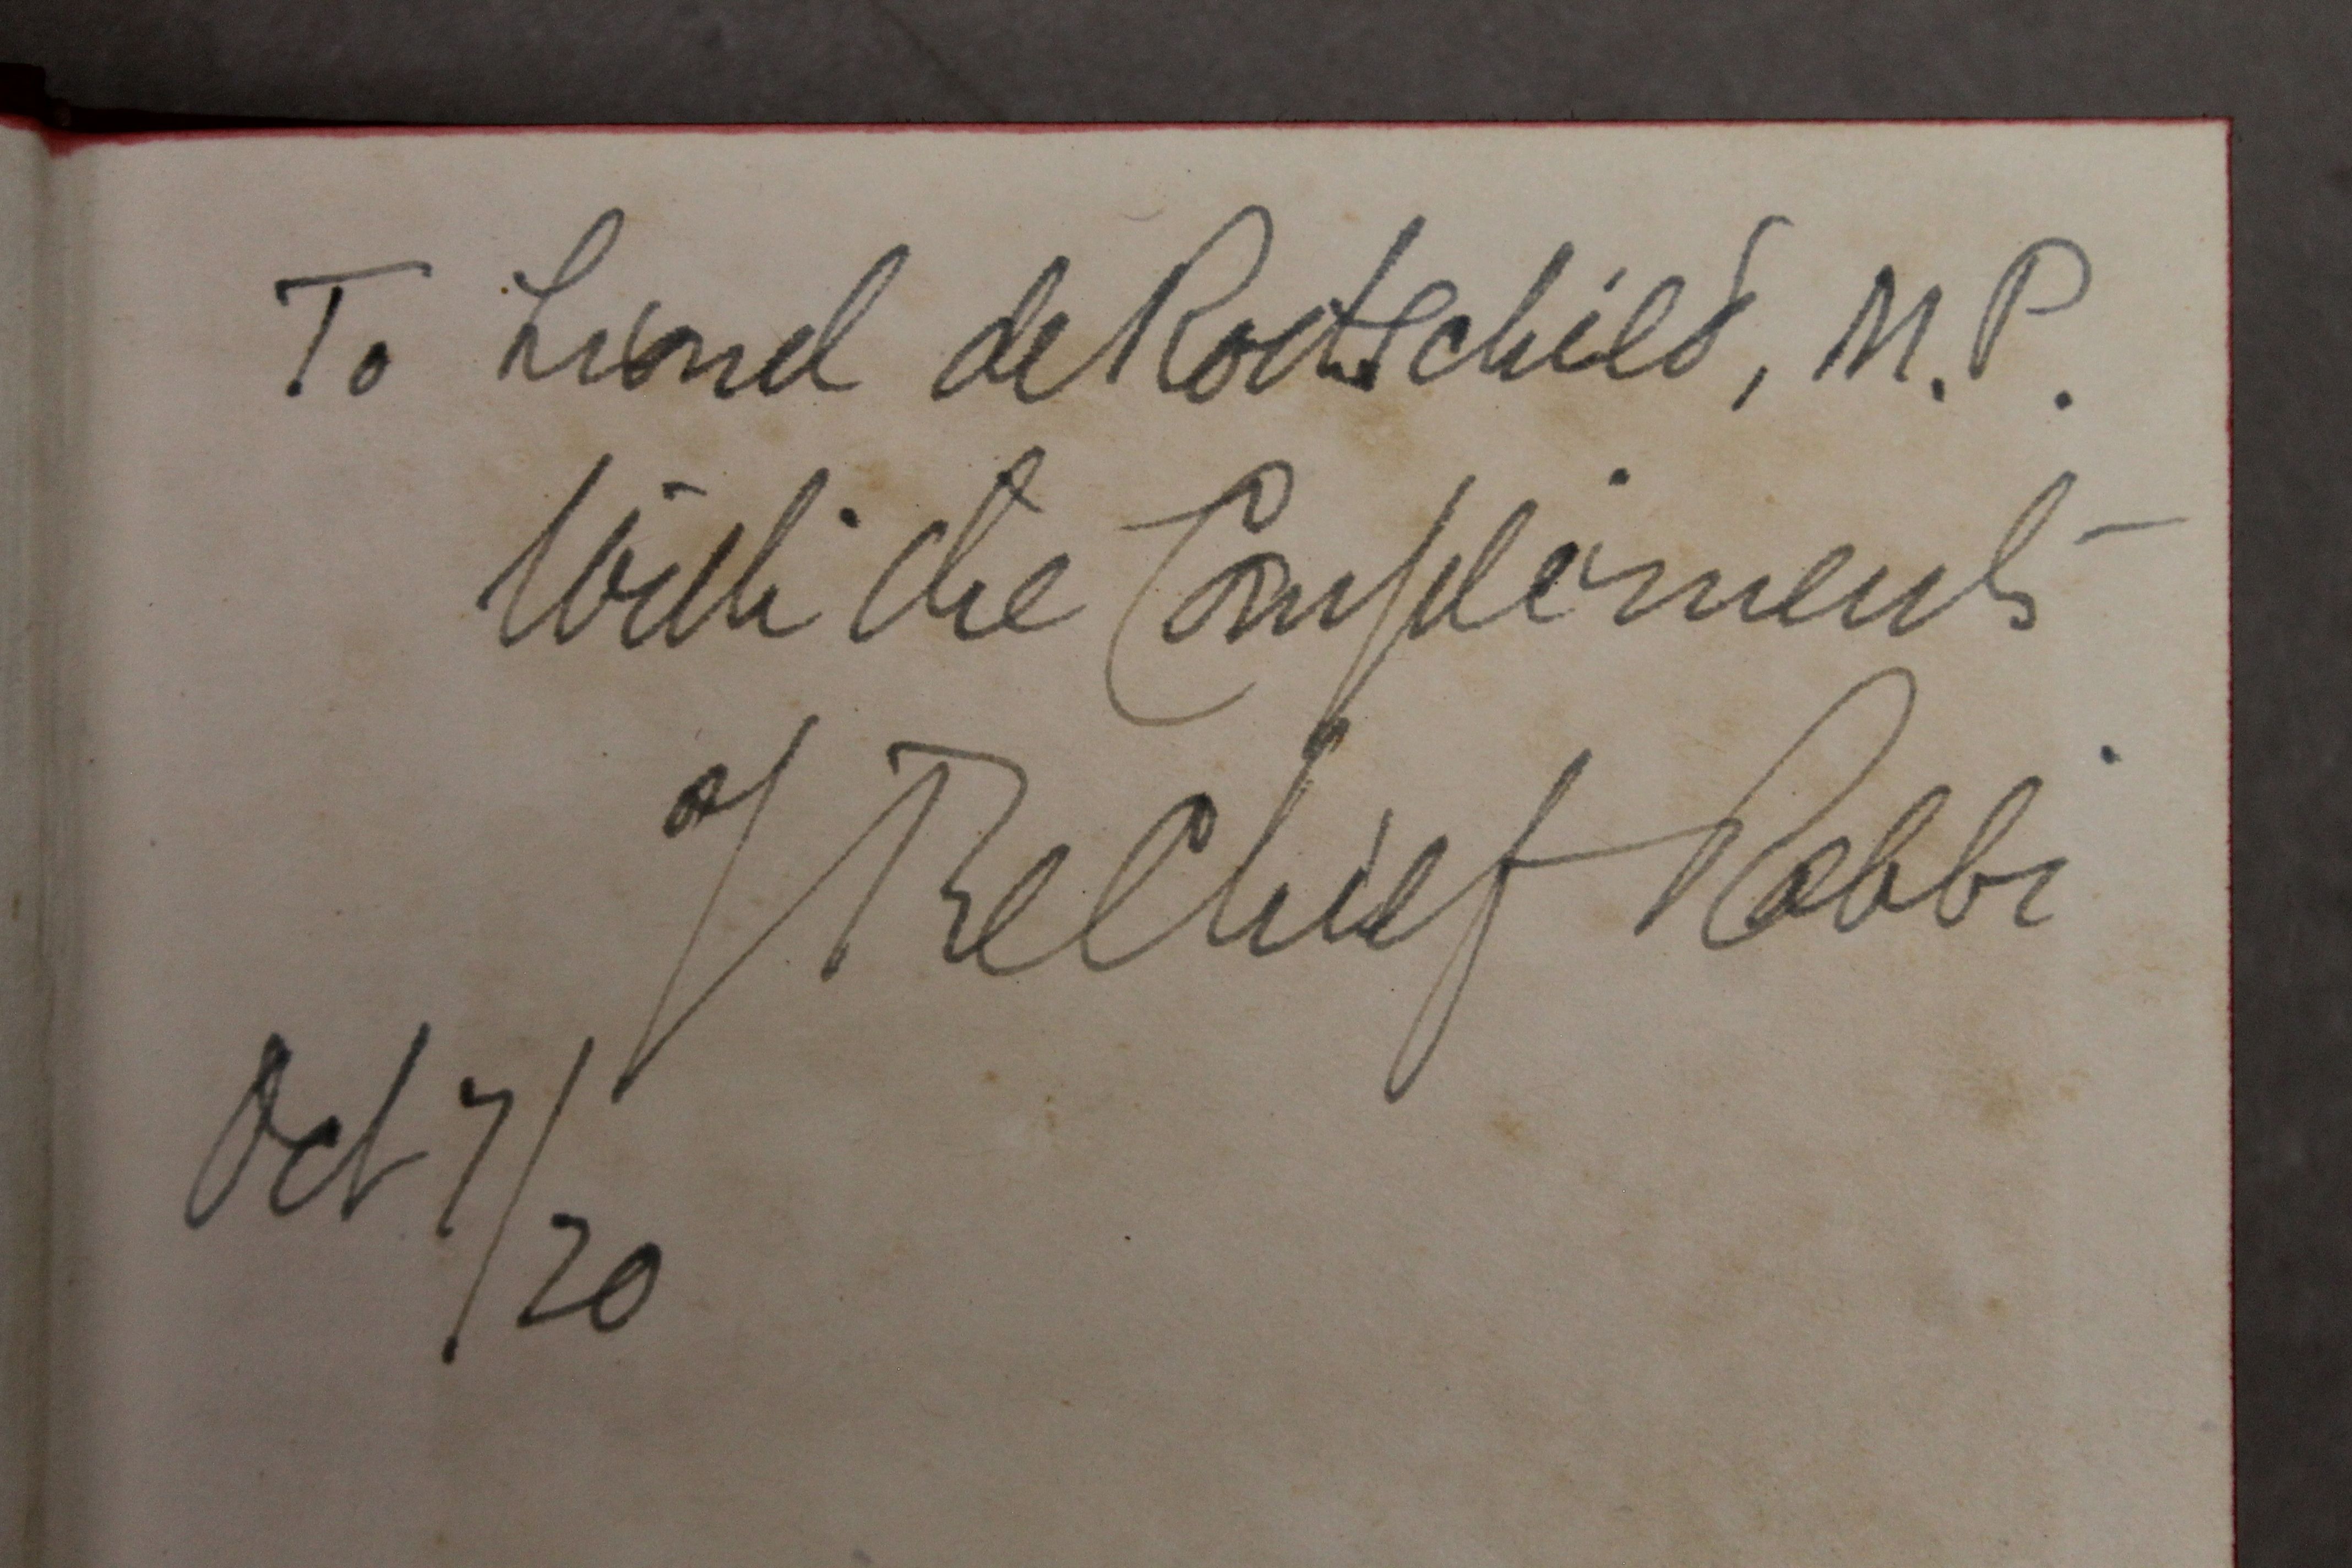 To Lionel de Rothschild, M.P.
With the Compliments
of The Chief Rabbi
Oct 7/20